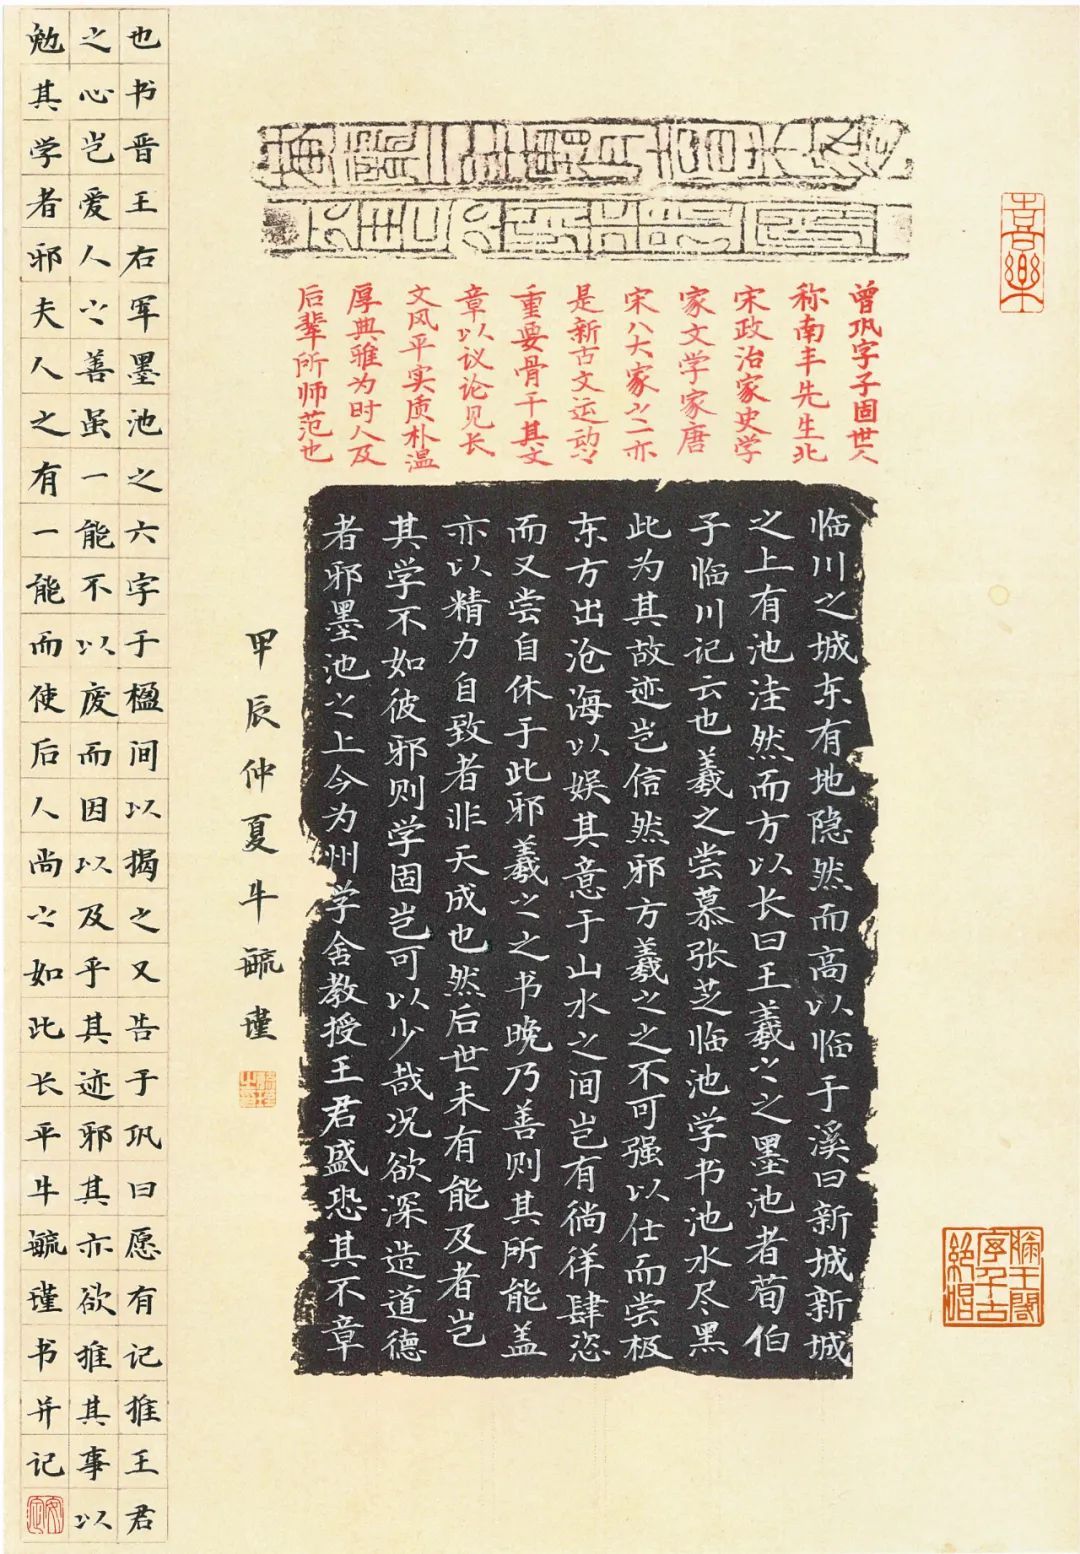 喜樂
曾巩字子固世人
称南丰先生北
宋政治家史学
家文学家唐
宋八大家之一亦
是新古文运动之
重要骨干其文
章以议论见长
文风平实质朴温
厚典雅为时人及
后辈所师范也
临川之城东有地隐然而高以临于溪曰新城新城
之上有池洼然而方以长曰王羲之之墨池者荀伯
子临川记云也羲之尝慕张芝临池学书池水尽黑
此为其故迹岂信然邪方羲之之不可强以仕而尝极
东方出沧海以娱其意于山水之间岂有徜徉肆恣
而又尝自休于此邪羲之之书晚乃善则其所能盖
亦以精力自致者非天成也然后世未有能及者岂
其学不如彼邪则学固岂可以少哉况欲深造道德
者邪墨池之上今为州学舍教授王君盛恐其不章
甲辰仲夏牛毓瑾
也书晋王右军墨池之六字于楹间以揭之又告于巩曰愿有记推王君
之心岂爱人之善虽一能不以废而因以及乎其迹邪其亦欲推其事以
勉其学者邪夫人之有一能而使后人尚之如此长平牛毓瑾书并记
滕王閣
序千古
絕唱